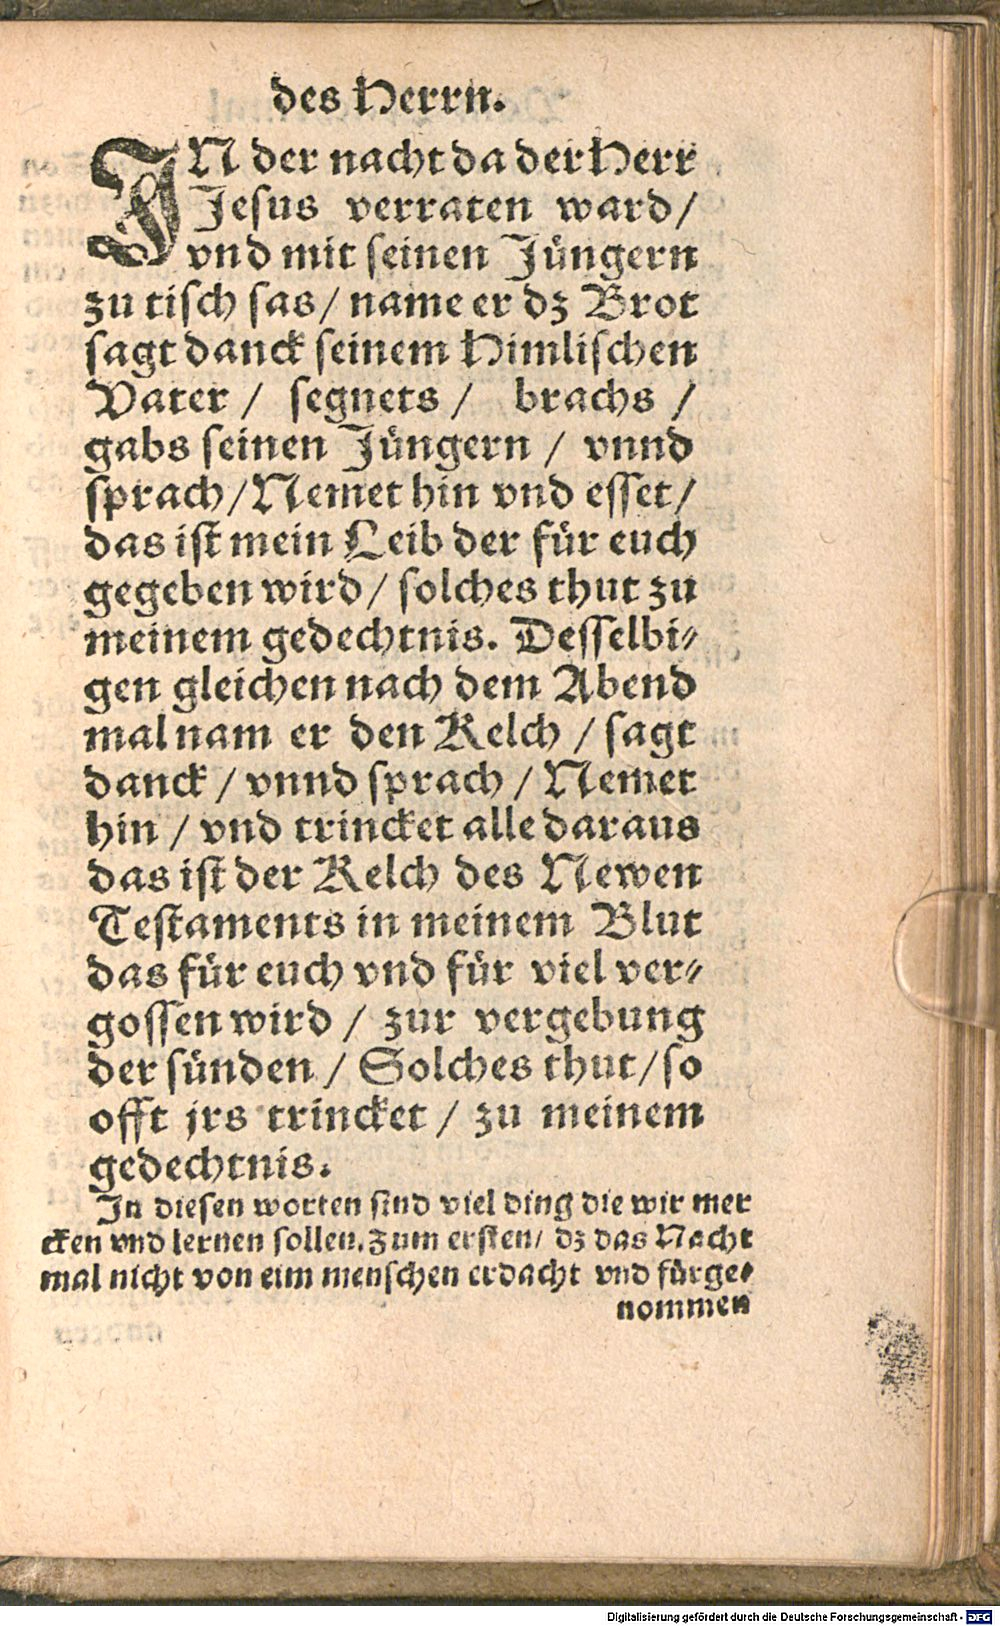 des Herrn.
IN der nacht da der Herr
Jesus verraten ward/
vnd mit seinen Jüngern
zu tisch sas/ name er dz Brot
sagt danck seinem Himlischen
Vater / segnets / brachs /
gabs seinen Jüngern / vnnd
sprach/Nemet hin vnd esset/
das ist mein Leib der für euch
gegeben wird/ solches thut zu
meinem gedechtnis. Desselbi-
gen gleichen nach dem Abend
mal nam er den Kelch / sagt
danck / vnnd sprach / Nemet
hin / vnd trincket alle daraus
das ist der Kelch des Newen
Testaments in meinem Blut
das für euch vnd für viel ver-
gossen wird / zur vergebung
der sünden / Solches thut/so
offt jrs trincket / zu meinem
gedechtnis.
In diesen worten sind viel ding die wir mer
cken vnd lernen sollen. Zum ersten/ dz das Nacht
mal nicht von eim menschen erdacht vnd fürge-
nommen
Digitalisierung gefördert durch die Deutsche Forschungsgemeinschaft - DFG